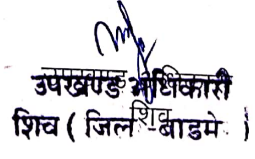 उपखण्ड अधिकारी
शिव
शिव ( जिला-बाडमे )